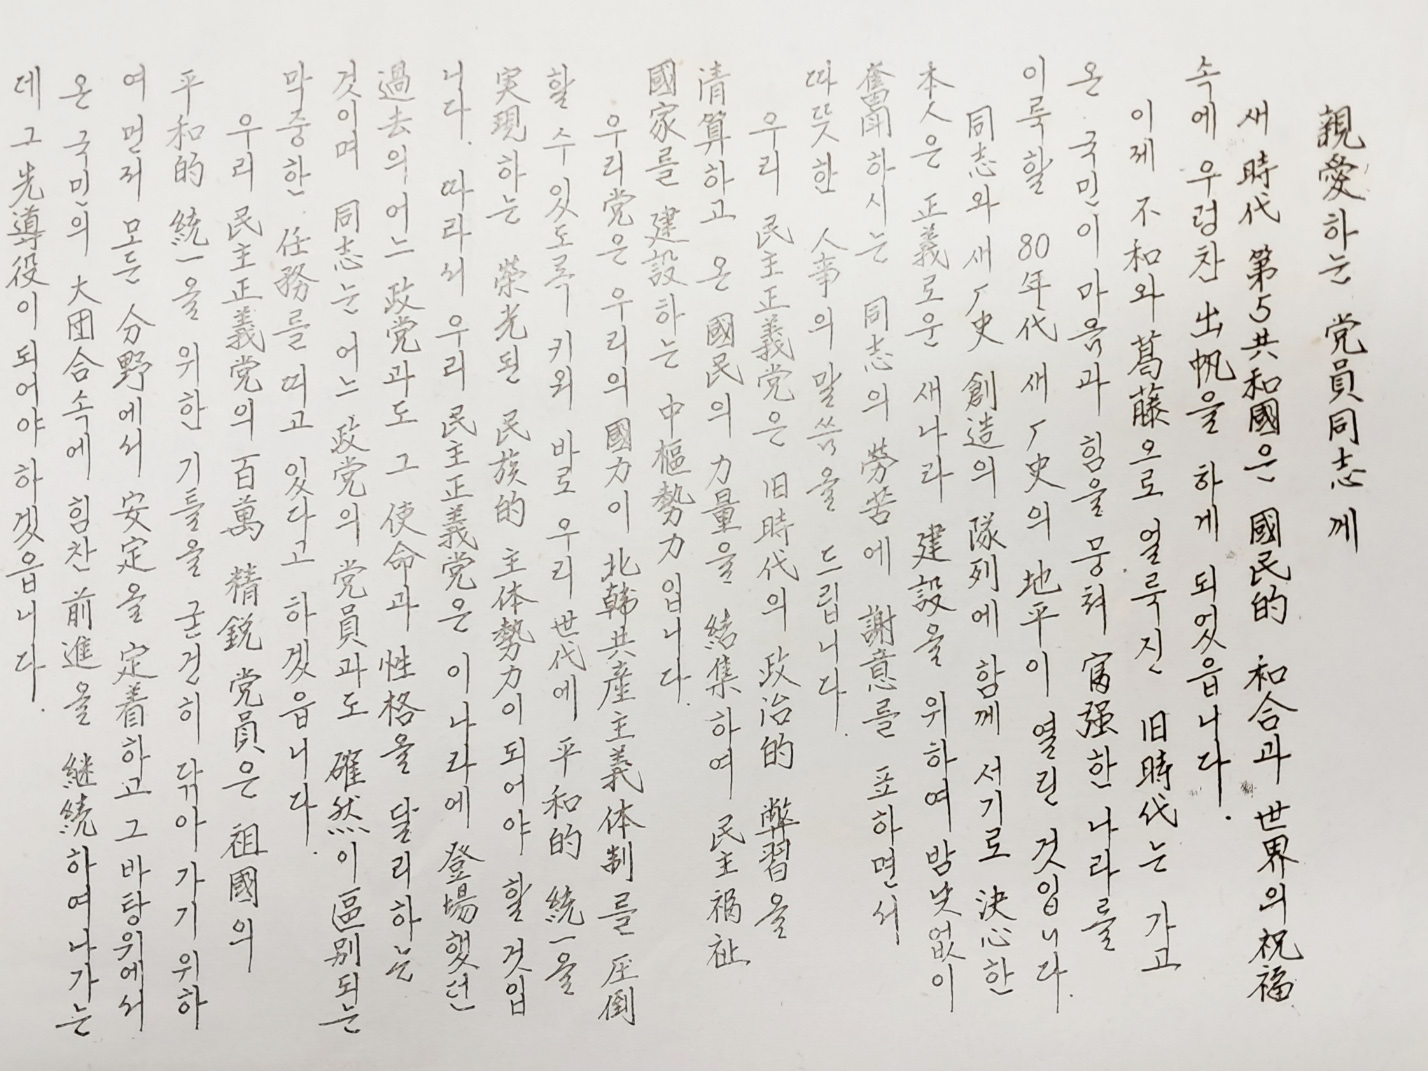 親愛하는 党員同志께
새 時代 第5共和國은 國民的 和合과 世界의 祝福
속에 우렁찬 出帆을 하게 되었읍니다.
이제 不和와 葛藤으로 얼룩진 旧時代는 가고
온 국민이 마음과 힘을 뭉쳐 富强한 나라를
이룩할 80年代 새 厂史의 地平이 열린 것입니다.
同志와 새 厂史 創造의 隊列에 함께 서기로 決心한
本人은 正義로운 새나라 建設을 위하여 밤낮없이
奮鬪하시는 同志의 勞苦에 謝意를 표하면서
따뜻한 人事의 말씀을 드립니다.
우리 民主正義党은 旧時代의 政治的 弊習을
清算하고 온 國民의 力量을 結集하여 民主福祉
國家를 建設하는 中樞勢力입니다.
우리党은 우리의 國力이 北韓共産主義体制를 圧倒
할 수 있도록 키워 바로 우리 世代에 平和的 統一을
実現하는 榮光된 民族的 主体勢力이 되어야 할 것입
니다. 따라서 우리 民主正義党은 이 나라에 登場했던
過去의 어느 政党과도 그 使命과 性格을 달리하는
것이며 同志는 어느 政党의 党員과도 確然이 區別되는
막중한 任務를 띠고 있다고 하겠읍니다.
우리 民主正義党의 百萬 精鋭 党員은 祖國의
平和的 統一을 위한 기틀을 굳건히 닦아 가기 위하
여 먼저 모든 分野에서 安定을 定着하고 그 바탕위에서
온 국민의 大団合속에 힘찬 前進을 継続하여 나가는
데 그 先導役이 되어야 하겠읍니다.